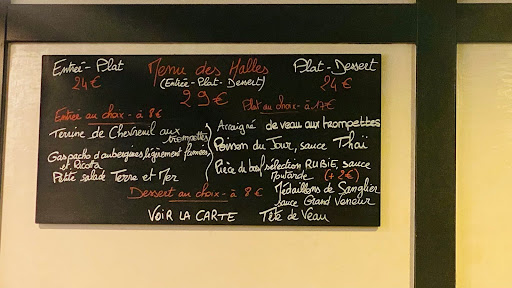 Entrée - Plat
24€
Menu des Halles
(Entrée - Plat - Dessert)
29€
Plat - Dessert
24€
Entrée au choix - à 8€
Terrine de Chevreuil aux trompettes
Gaspacho d'aubergines légèrement fumées,
et Ricotta
Petite salade Terre et Mer
Plat au choix - à 17€
Araigné de veau aux trompettes
Poisson du Jour, sauce Thaï
Pièce du boeuf sélection RUBIE, sauce
Moutarde (+ 2€)
Médaillons de Sanglier
sauce Grand Veneur
Tête de Veau
Dessert au choix - à 8€
VOIR LA CARTE